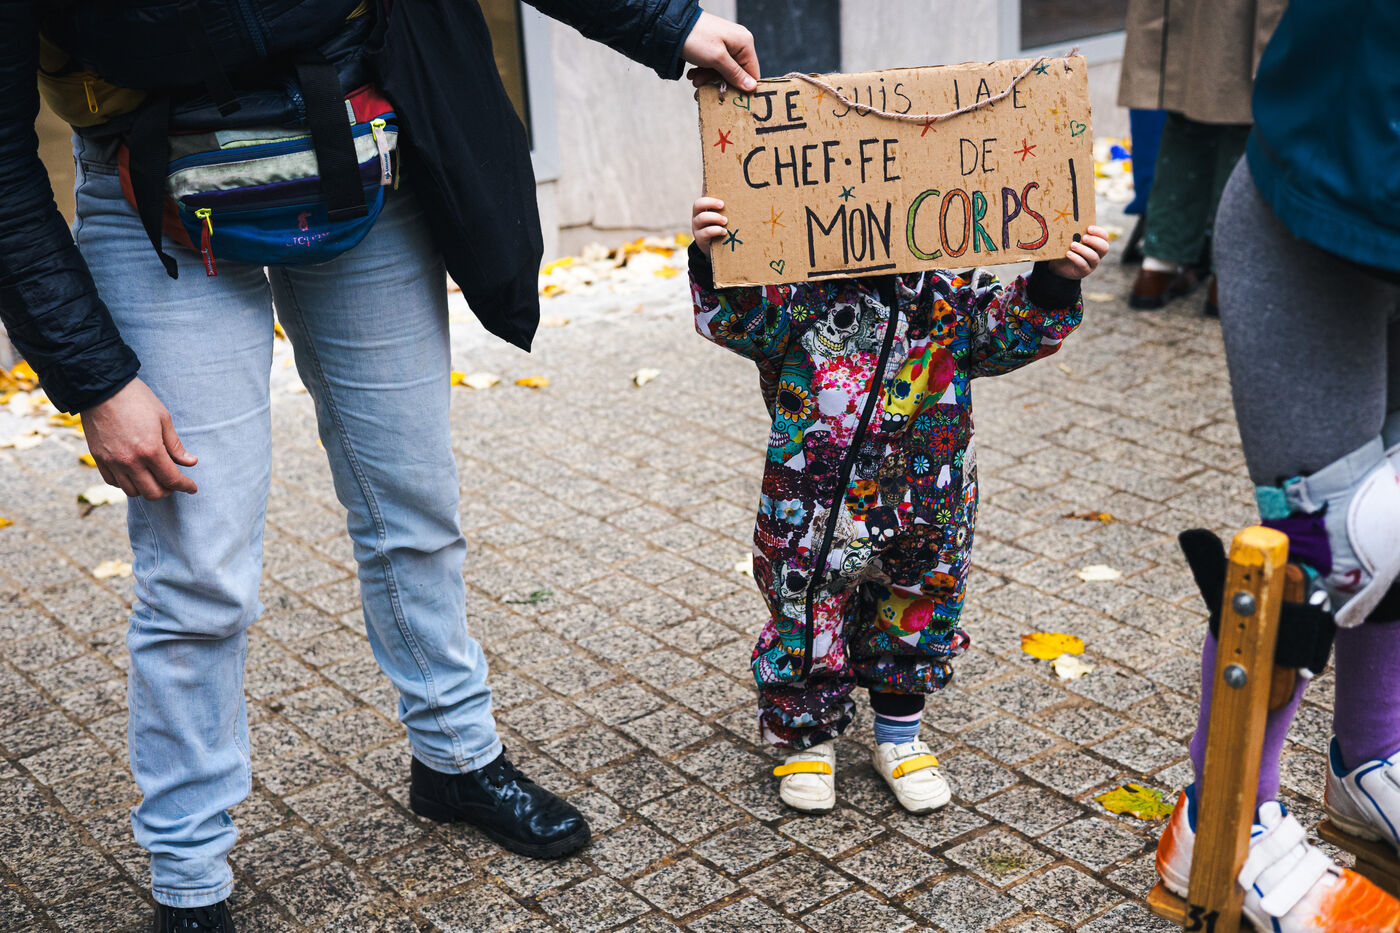 JE SUIS LA·E
CHEF·FE DE
MON CORPS !
31